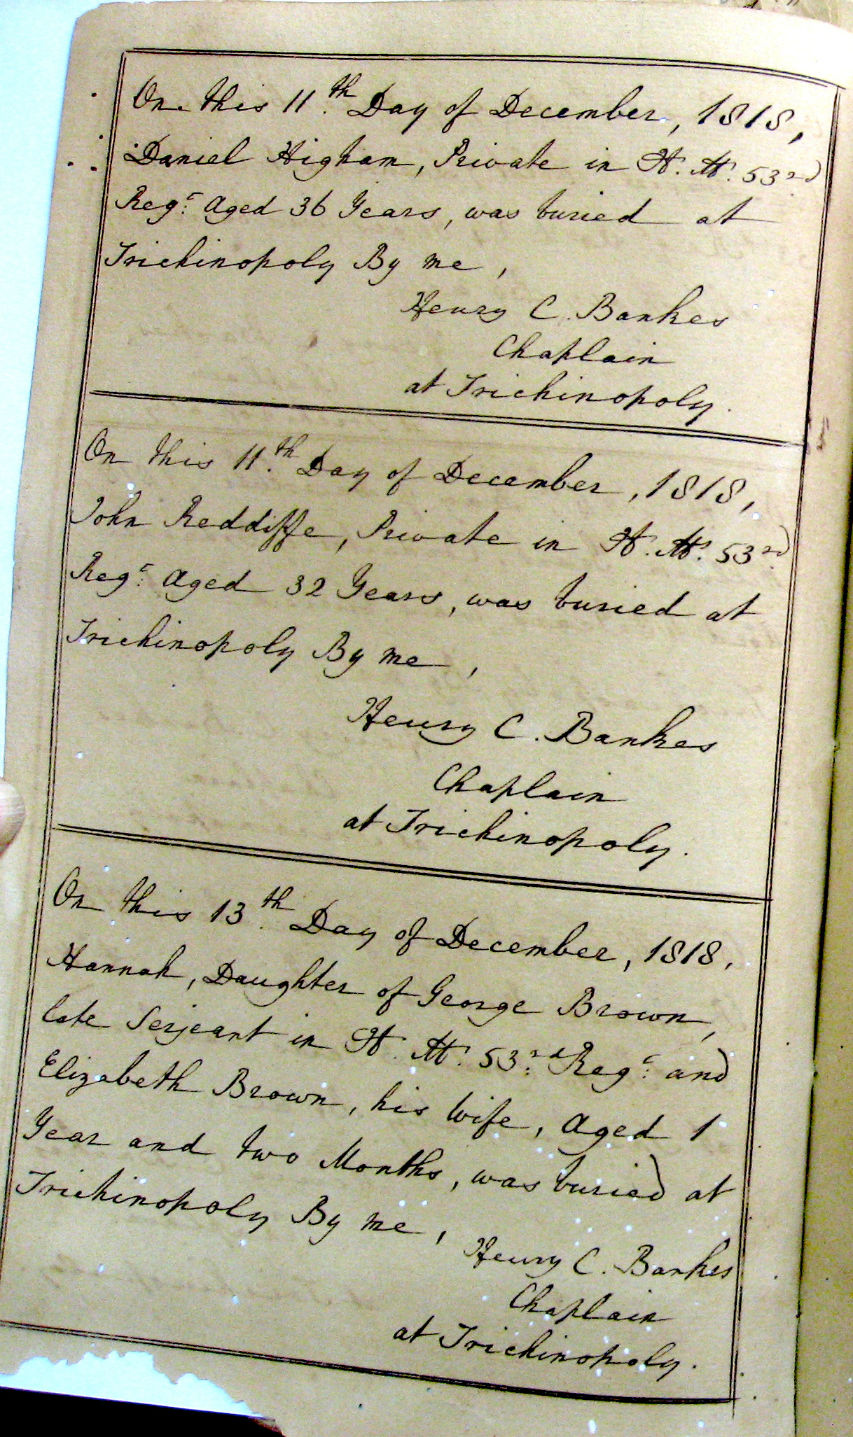 On this 11th Day of December, 1818,
Daniel Higham, Private in H. M. 53rd
Regt. Aged 36 Years, was buried at
Trichinopoly By me,
Henry C. Bankes
Chaplain
at Trichinopoly.
On this 11th Day of December, 1818,
John Reddiffe, Private in H. M. 53rd
Regt. Aged 32 Years, was buried at
Trichinopoly By me,
Henry C. Bankes
Chaplain
at Trichinopoly.
On this 13th Day of December, 1818.
Hannah, Daughter of George Brown,
late Serjeant in H. M. 53rd Regt. and
Elizabeth Brown, his wife, Aged 1
Year and two Months, was buried at
Trichinopoly By me,
Henry C. Bankes
Chaplain
at Trichinopoly.